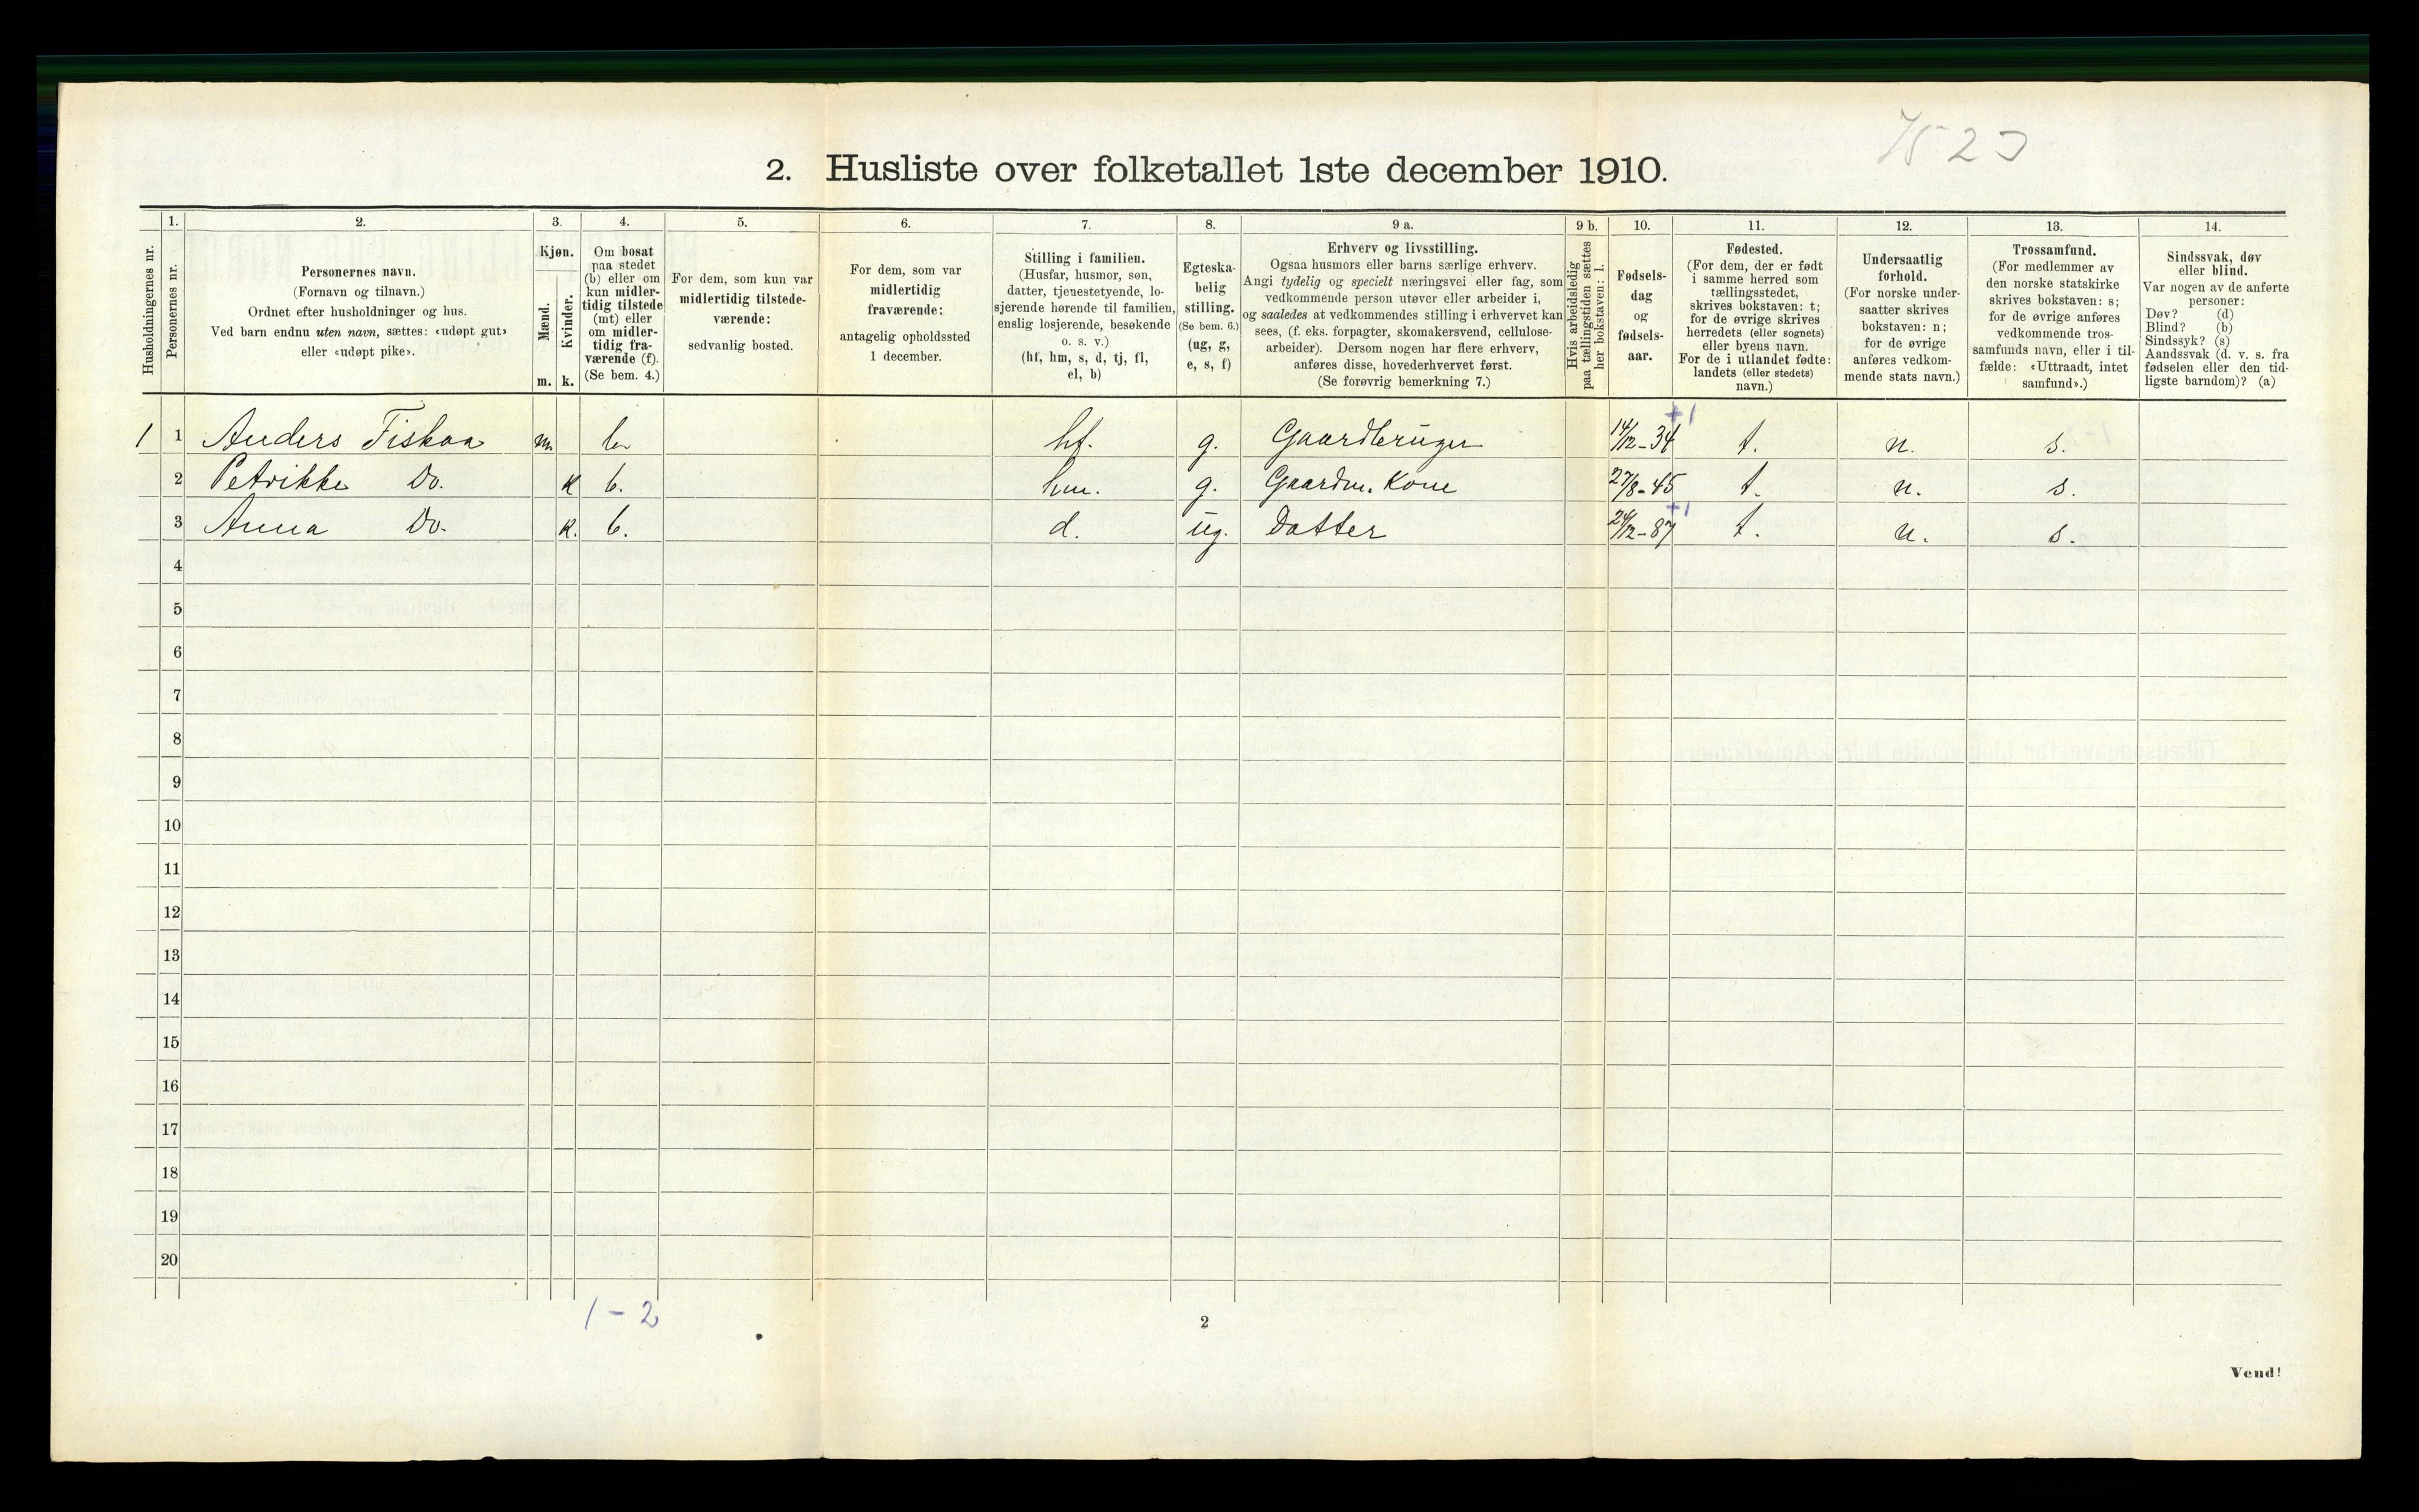 7523
2. Husliste over folketallet 1ste december 1910.
Husholdningernes nr.
1. Personernes nr.
2. Personernes navn. (Fornavn og tilnavn.) Ordnet efter husholdninger og hus. Ved barn endnu uten navn, sættes: «udøpt gut» eller «udøpt pike».
3. Kjøn. Mænd. m. Kvinder. k.
4. Om bosat paa stedet (b) eller om kun midlertidig tilstede (mt) eller om midlertidig fraværende (f). (Se bem. 4.)
5. For dem, som kun var midlertidig tilstedeværende: sedvanlig bosted.
6. For dem, som var midlertidig fraværende: antagelig opholdssted 1 december.
7. Stilling i familien. (Husfar, husmor, søn, datter, tjenestetyende, losjerende hørende til familien, enslig losjerende, besøkende o. s. v.) (hf, hm, s, d, tj, fl, el, b)
8. Egteskabelig stilling. (Se bem. 6.) (ug, g, e, s, f)
9 a. Erhverv og livsstilling. Ogsaa husmors eller barns særlige erhverv. Angi tydelig og specielt næringsvei eller fag, som vedkommende person utøver eller arbeider i, og saaledes at vedkommendes stilling i erhvervet kan sees, (f. eks. forpagter, skomakersvend, cellulosearbeider). Dersom nogen har flere erhverv, anføres disse, hovederhvervet først. (Se forøvrig bemerkning 7.)
9 b. Hvis arbeidsledig paa tællingstiden sættes her bokstaven: l.
10. Fødselsdag og fødselsaar.
11. Fødested. (For dem, der er født i samme herred som tællingsstedet, skrives bokstaven: t; for de øvrige skrives herredets (eller sognets) eller byens navn. For de i utlandet fødte: landets (eller stedets) navn.)
12. Undersaatlig forhold. (For norske undersaatter skrives bokstaven: n; for de øvrige anføres vedkommende stats navn.)
13. Trossamfund. (For medlemmer av den norske statskirke skrives bokstaven: s; for de øvrige anføres vedkommende trossamfunds navn, eller i tilfælde: «Uttraadt, intet samfund».)
14. Sindssvak, døv eller blind. Var nogen av de anførte personer: Døv? (d) Blind? (b) Sindssyk? (s) Aandssvak (d. v. s. fra fødselen eller den tidligste barndom)? (a)
1 1 Anders Fiskaa m. b. hf. g. Gaardbruger 14/12-34 +1 t. n. s.
2 Petrikke Do. k b. hm. g. Gaardm. Kone 27/8-45 t. n. s.
3 Anna Do. k. b. d. ug. Datter 24/12-87 +1 t. n. s.
4
5
6
7
8
9
10
11
12
13
14
15
16
17
18
19
20
1-2
2
Vend!